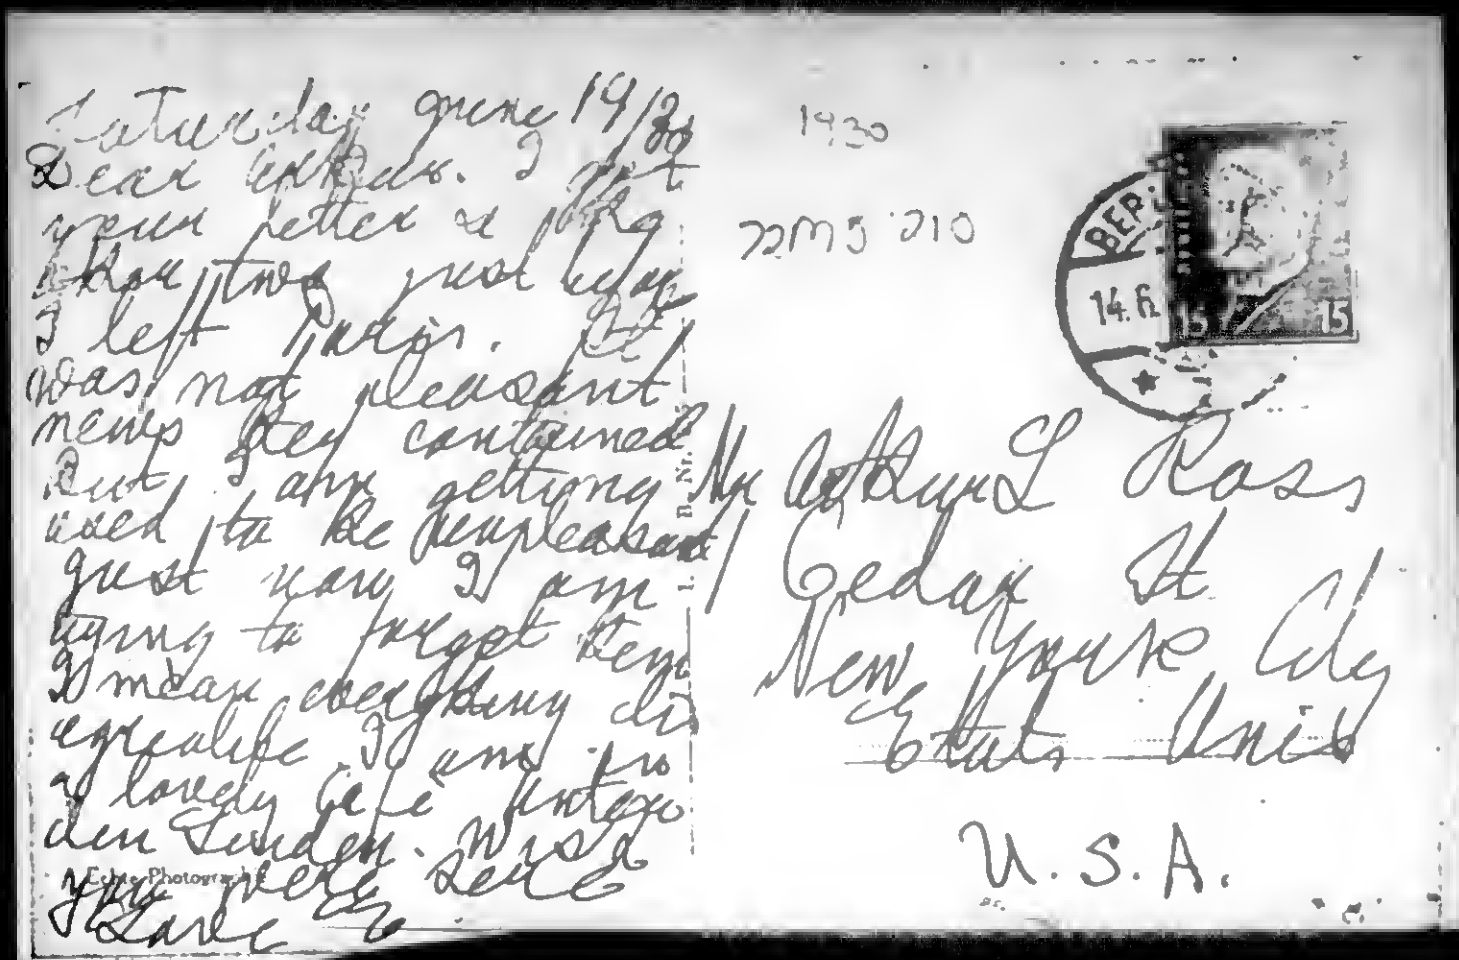 Saturday June 14/30
Dear Arthur. I got
your letter &
thou two just before
I left Paris. It
was not pleasant
news they contained
But I am getting
used to the unpleasant
Just now I am
trying to forget them
I mean everything dis
agreable I am in
a lovely Café Unter
den Linden. Wish
you were here
Love E
Echte Photographie
1930
BERLIN
14.6.
15 15
Mr Arthur L Ross
1 Cedar St
New York City
Etats Unis
U.S.A.